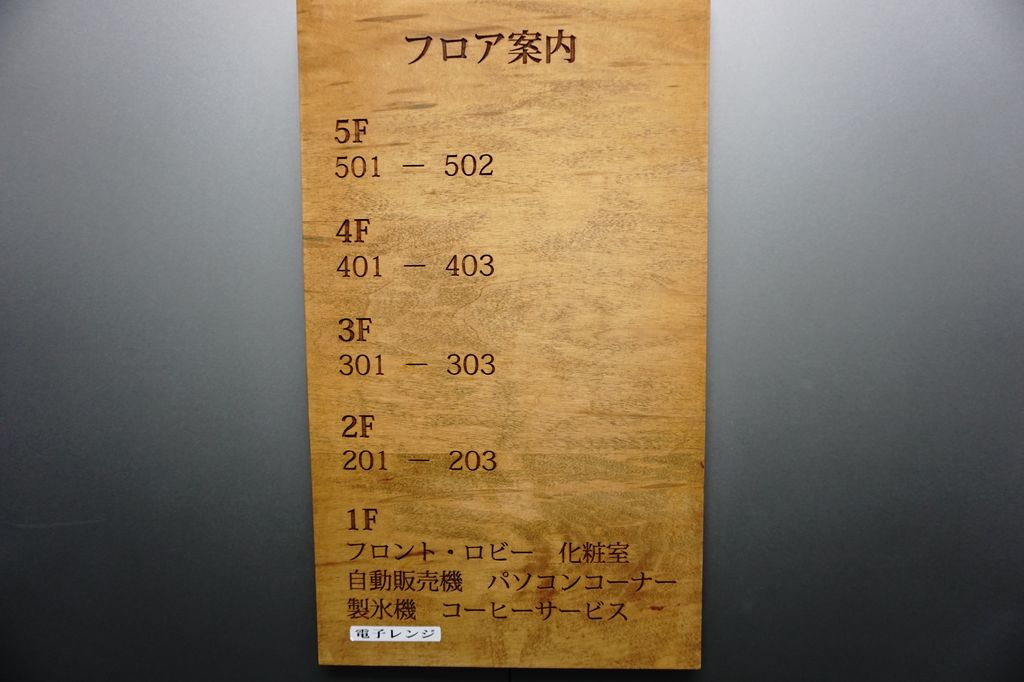 フロア案内
5F
501 － 502
4F
401 － 403
3F
301 － 303
2F
201 － 203
1F
フロント・ロビー　化粧室
自動販売機　パソコンコーナー
製氷機　コーヒーサービス
電子レンジ